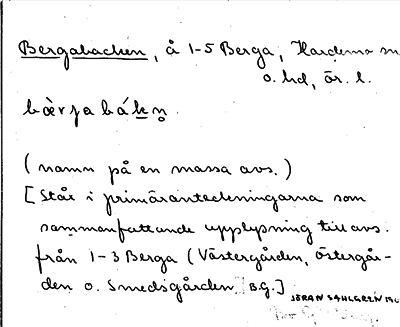 Bergabacken, å 1-5 Berga, Hardemo sn
o. hd, ör. l.
bæ̀rjabákn̥
(namn på en massa avs.)
[Står i primäranteckningarna som
sammanfattande upplysning till avs.
från 1-3 Berga (Västergården, Östergår-
den o. Smedsgården. B.G.]
JÖRAN SAHLGREN